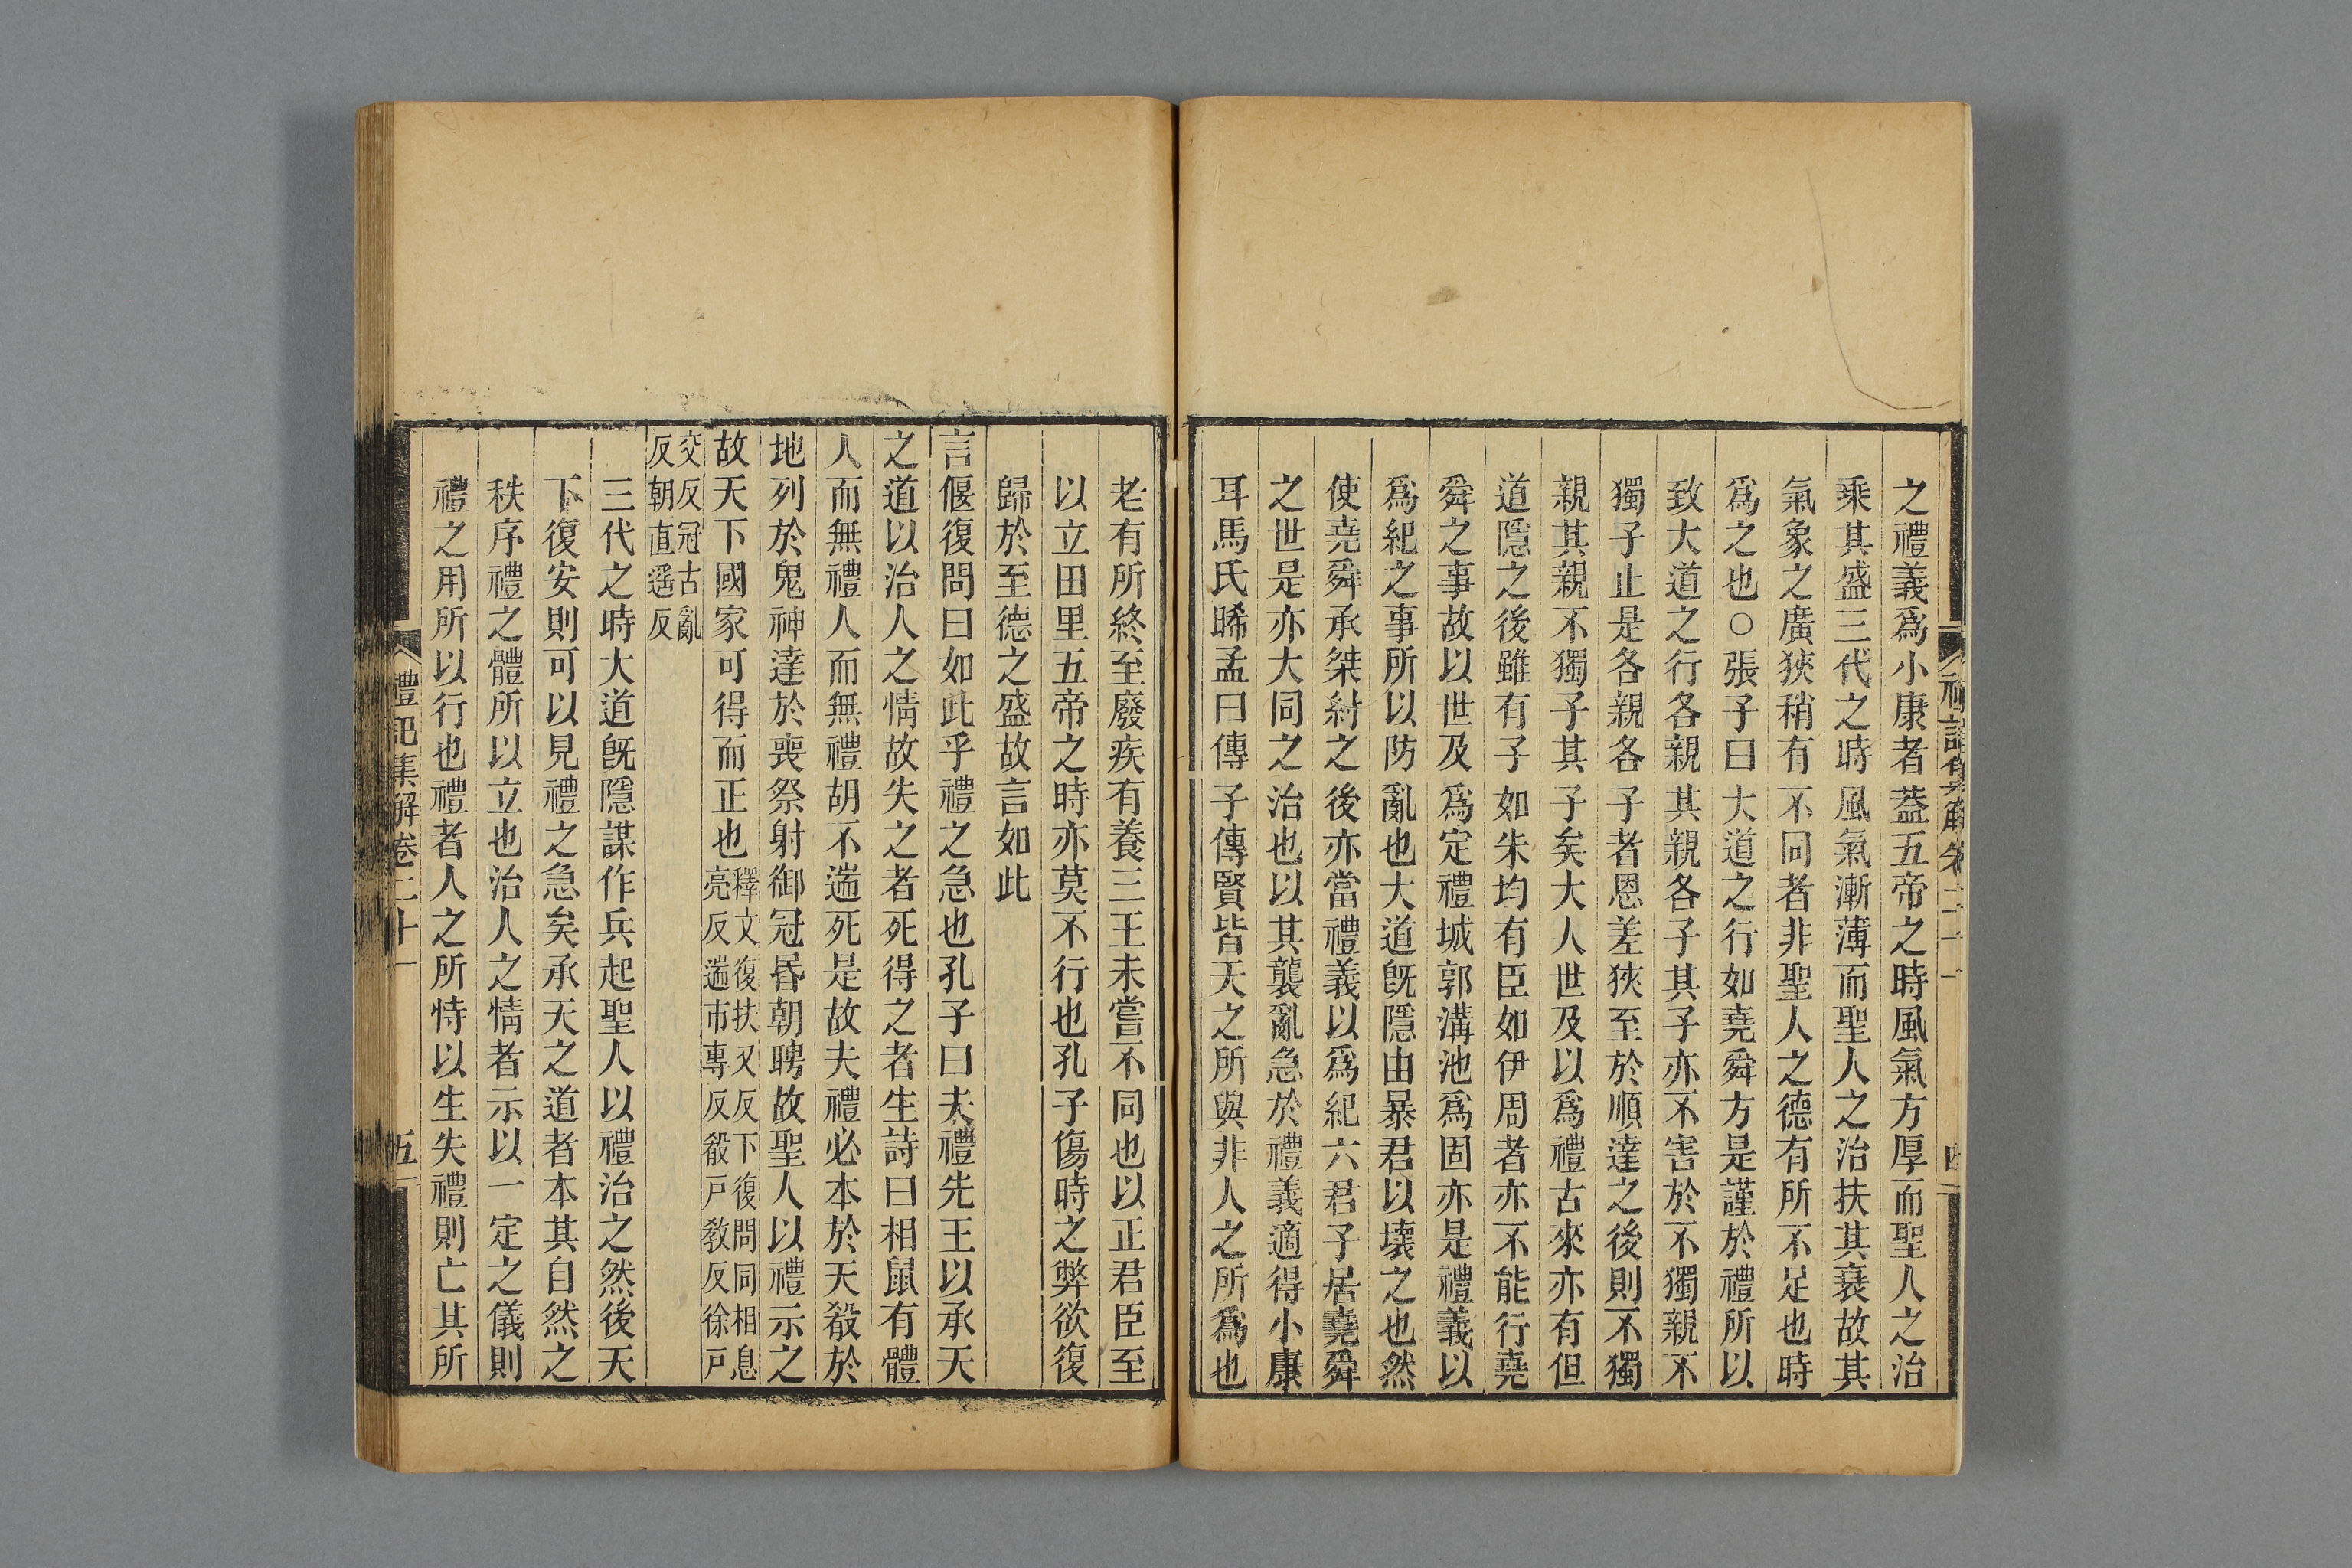 之禮義爲小康者葢五帝之時風氣方厚而聖人之治
乘其盛三代之時風氣漸薄而聖人之治扶其衰故其
氣象之廣狹稍有不同者非聖人之德有所不足也時
爲之也○張子曰大道之行如堯舜方是謹於禮所以
致大道之行各親其親各子其子亦不害於不獨親不
獨子止是各親各子者恩差狹至於順達之後則不獨
親其親不獨子其子矣大人世及以爲禮古來亦有但
道隱之後雖有子如朱均有臣如伊周者亦不能行堯
舜之事故以世及爲定禮城郭溝池爲固亦是禮義以
爲紀之事所以防亂也大道旣隱由暴君以壞之也然
使堯舜承桀紂之後亦當禮義以爲紀六君子居堯舜
之世是亦大同之治也以其襲亂急於禮義適得小康
耳馬氏晞孟曰傳子傳賢皆天之所與非人之所爲也
老有所終至廢疾有養三王未嘗不同也以正君臣至
以立田里五帝之時亦莫不行也孔子傷時之弊欲復
歸於至德之盛故言如此
言偃復問曰如此乎禮之急也孔子曰夫禮先王以承天
之道以治人之情故失之者死得之者生詩曰相鼠有體
人而無禮人而無禮胡不遄死是故夫禮必本於天殽於
地列於鬼神達於喪祭射御冠昏朝聘故聖人以禮示之
故天下國家可得而正也釋文復扶又反下復問同相息
亮反遄市專反殽戸教反徐戸
交反冠古亂
反朝直遥反
三代之時大道旣隱謀作兵起聖人以禮治之然後天
下復安則可以見禮之急矣承天之道者本其自然之
秩序禮之體所以立也治人之情者示以一定之儀則
禮之用所以行也禮者人之所恃以生失禮則亡其所
禮記集解卷二十一
五